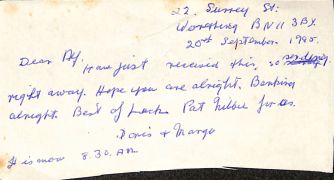 22. Surrey St:
Worthing BN11 3BX.
20th September 1995.
Dear Alf.
Have just received this, so sending
right away. Hope you are alright.
alright. Best of Luck Pat for us.
Doris & Margo
It is now 8.30. AM